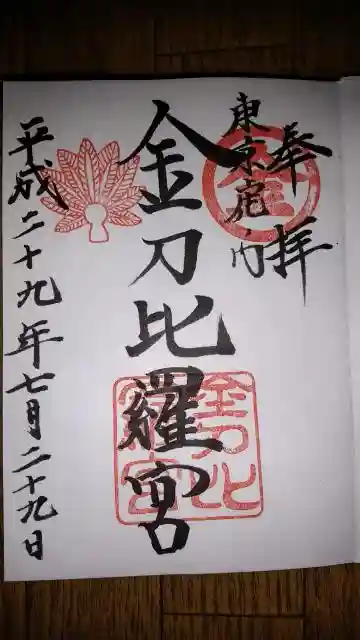 奉拝
東京虎ノ門
金刀比羅宮
平成二十九年七月二十九日
金
金刀比
羅宮